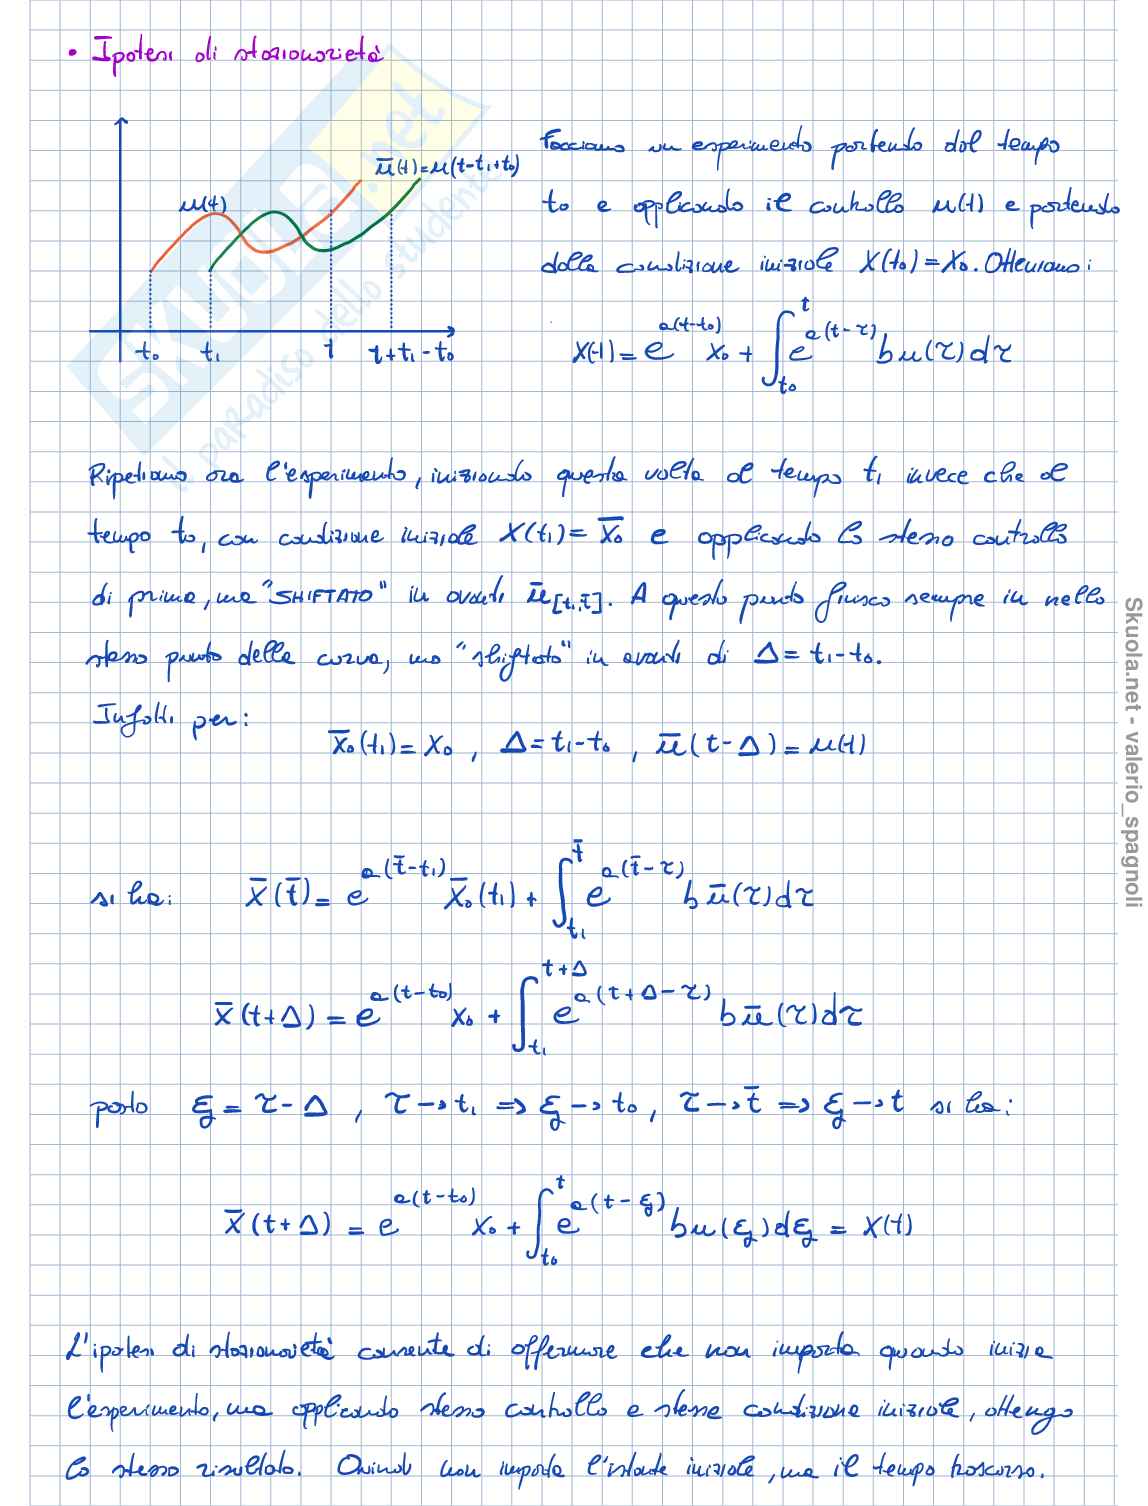 • Ipotesi di stazionarietà
Facciamo un esperimento partendo dal tempo
t₀ e applicando il controllo u(t) e partendo
dalla condizione iniziale X(t₀)=X₀. Otteniamo:
ū(t)=u(t-t₁+t₀)
u(t)
t₀ t₁ t t+t₁-t₀
X(t) = e^{a(t-t₀)} X₀ + ∫_{t₀}^{t} e^{a(t-τ)} b u(τ) dτ
Ripetiamo ora l'esperimento, iniziando questa volta al tempo t₁ invece che al
tempo t₀, con condizione iniziale X(t₁)=X̄₀ e applicando lo stesso controllo
di prima, ma "SHIFTATO" in avanti ū[t₁,t̄]. A questo punto finisco sempre in nello
stesso punto della curva, ma "shiftato" in avanti di Δ= t₁-t₀.
Infatti per:
X̄₀(t₁)=X₀ , Δ=t₁-t₀ , ū(t-Δ)=u(t)
si ha: X̄(t̄) = e^{a(t̄-t₁)} X̄₀(t₁) + ∫_{t₁}^{t̄} e^{a(t̄-τ)} b ū(τ) dτ
X̄(t+Δ) = e^{a(t-t₀)} X₀ + ∫_{t₁}^{t+Δ} e^{a(t+Δ-τ)} b ū(τ) dτ
posto ξ = τ-Δ , τ→t₁ ⇒ ξ→t₀ , τ→t̄ ⇒ ξ→t si ha:
X̄(t+Δ) = e^{a(t-t₀)} X₀ + ∫_{t₀}^{t} e^{a(t-ξ)} b u(ξ) dξ = X(t)
L'ipotesi di stazionarietà consente di affermare che non importa quando inizia
l'esperimento, ma applicando stesso controllo e stesse condizione iniziale, ottengo
lo stesso risultato. Quindi non importa l'istante iniziale, ma il tempo trascorso.
SKUOLA.net
il paradiso dello studente
Skuola.net - valerio_spagnoli